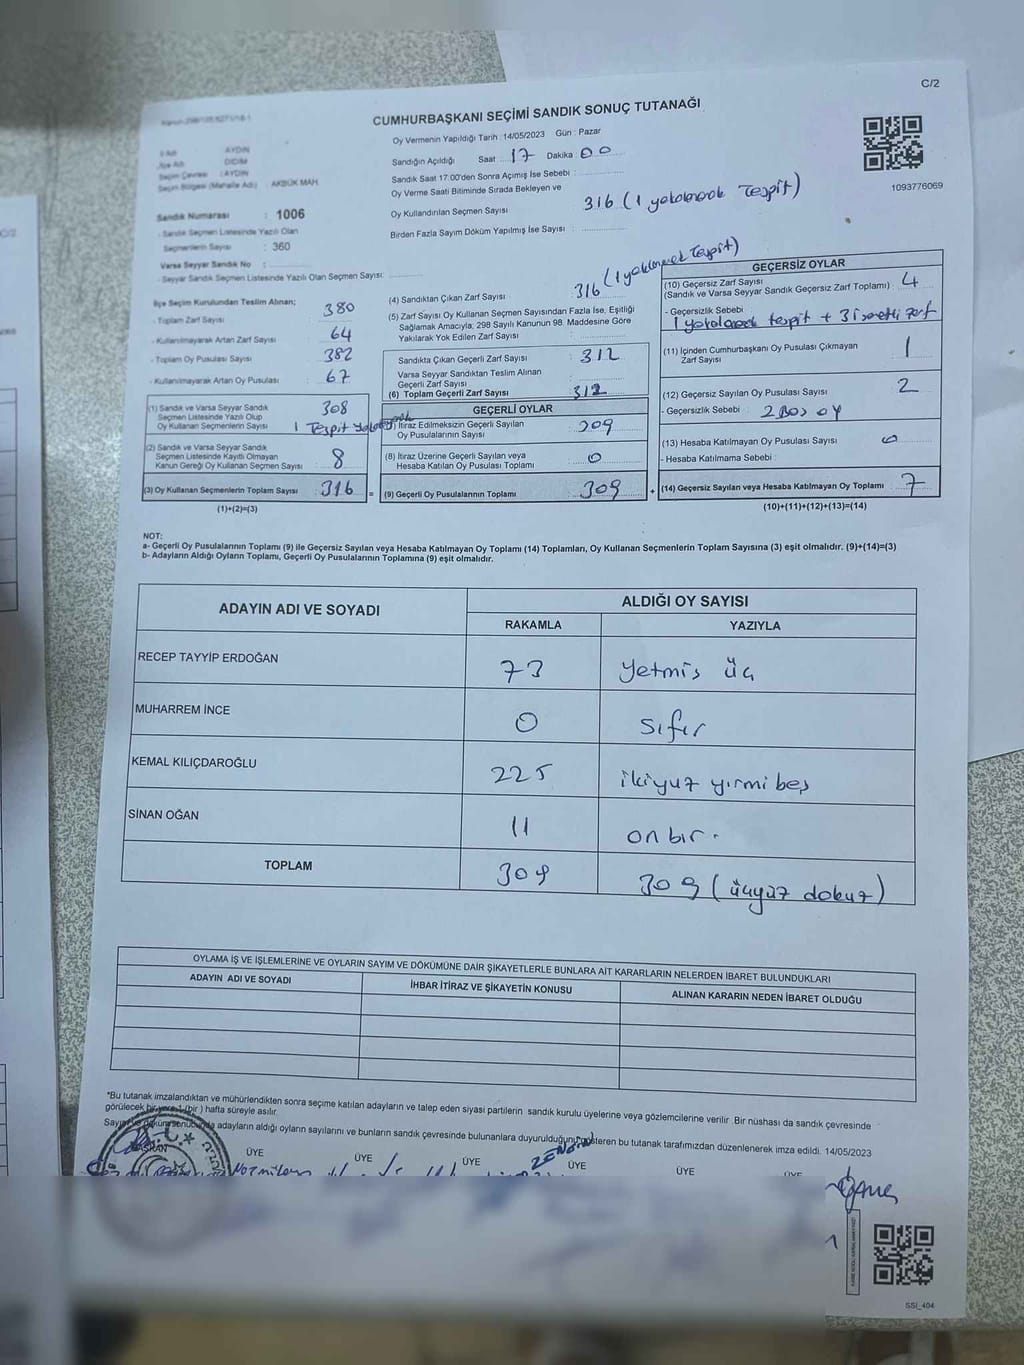 C/2
CUMHURBAŞKANI SEÇİMİ SANDIK SONUÇ TUTANAĞI
Oy Vermenin Yapıldığı Tarih : 14/05/2023 Gün : Pazar
İli Adı : AYDIN
İlçe Adı : DİDİM
Seçim Çevresi : AYDIN
Seçim Bölgesi (Mahalle Adı) : AKBÜK MAH.
Sandık Numarası : 1006
- Sandık Seçmen Listesinde Yazılı Olan
Seçmenlerin Sayısı : 360
Varsa Seyyar Sandık No :
- Seyyar Sandık Seçmen Listesinde Yazılı Olan Seçmen Sayısı:
Sandığın Açıldığı Saat 17 Dakika 00
Sandık Saat 17.00'den Sonra Açımış İse Sebebi :
Oy Verme Saati Bitiminde Sırada Bekleyen ve
Oy Kullandırılan Seçmen Sayısı 316 (1 yakalanarak Tespit)
Birden Fazla Sayım Döküm Yapılmış İse Sayısı :
1093776069
İlçe Seçim Kurulundan Teslim Alınan;
- Toplam Zarf Sayısı : 380
- Kullanılmayarak Artan Zarf Sayısı : 64
- Toplam Oy Pusulası Sayısı : 382
- Kullanılmayarak Artan Oy Pusulası : 67
(1) Sandık ve Varsa Seyyar Sandık
Seçmen Listesinde Yazılı Olup
Oy Kullanan Seçmenlerin Sayısı : 308
1 Tespit
(2) Sandık ve Varsa Seyyar Sandık
Seçmen Listesinde Kayıtlı Olmayan
Kanun Gereği Oy Kullanan Seçmen Sayısı : 8
(3) Oy Kullanan Seçmenlerin Toplam Sayısı : 316 =
(1)+(2)=(3)
(4) Sandıktan Çıkan Zarf Sayısı : 316 (1 Tespit)
(5) Zarf Sayısı Oy Kullanan Seçmen Sayısından Fazla İse, Eşitliği
Sağlamak Amacıyla; 298 Sayılı Kanunun 98. Maddesine Göre
Yakılarak Yok Edilen Zarf Sayısı :
Sandıkta Çıkan Geçerli Zarf Sayısı : 312
Varsa Seyyar Sandıktan Teslim Alınan
Geçerli Zarf Sayısı :
(6) Toplam Geçerli Zarf Sayısı : 312
GEÇERLİ OYLAR
(7) İtiraz Edilmeksizin Geçerli Sayılan
Oy Pusulalarının Sayısı : 309
(8) İtiraz Üzerine Geçerli Sayılan veya
Hesaba Katılan Oy Pusulası Toplamı : 0
(9) Geçerli Oy Pusulalarının Toplamı : 309 +
GEÇERSİZ OYLAR
(10) Geçersiz Zarf Sayısı
(Sandık ve Varsa Seyyar Sandık Geçersiz Zarf Toplamı) : 4
- Geçersizlik Sebebi
1 tespit + 3 işaretli zarf
(11) İçinden Cumhurbaşkanı Oy Pusulası Çıkmayan
Zarf Sayısı : 1
(12) Geçersiz Sayılan Oy Pusulası Sayısı : 2
- Geçersizlik Sebebi : 2 Boş oy
(13) Hesaba Katılmayan Oy Pusulası Sayısı : 0
- Hesaba Katılmama Sebebi :
(14) Geçersiz Sayılan veya Hesaba Katılmayan Oy Toplamı : 7
(10)+(11)+(12)+(13)=(14)
NOT:
a- Geçerli Oy Pusulalarının Toplamı (9) ile Geçersiz Sayılan veya Hesaba Katılmayan Oy Toplamı (14) Toplamları, Oy Kullanan Seçmenlerin Toplam Sayısına (3) eşit olmalıdır. (9)+(14)=(3)
b- Adayların Aldığı Oyların Toplamı, Geçerli Oy Pusulalarının Toplamına (9) eşit olmalıdır.
ADAYIN ADI VE SOYADI ALDIĞI OY SAYISI
RAKAMLA YAZIYLA
RECEP TAYYİP ERDOĞAN 73 yetmiş üç
MUHARREM İNCE 0 sıfır
KEMAL KILIÇDAROĞLU 225 ikiyüz yirmi beş
SİNAN OĞAN 11 on bir.
TOPLAM 309 309 (üçyüz dokuz)
OYLAMA İŞ VE İŞLEMLERİNE VE OYLARIN SAYIM VE DÖKÜMÜNE DAİR ŞİKAYETLERLE BUNLARA AİT KARARLARIN NELERDEN İBARET BULUNDUKLARI
ADAYIN ADI VE SOYADI İHBAR İTİRAZ VE ŞİKAYETİN KONUSU ALINAN KARARIN NEDEN İBARET OLDUĞU
*Bu tutanak imzalandıktan ve mühürlendikten sonra seçime katılan adayların ve talep eden siyasi partilerin sandık kurulu üyelerine veya gözlemcilerine verilir. Bir nüshası da sandık çevresinde
görülecek bir yere 1 (bir) hafta süreyle asılır.
Sayım ve döküm sonucunda adayların aldığı oyların sayılarını ve bunların sandık çevresinde bulunanlara duyurulduğunu gösteren bu tutanak tarafımızdan düzenlenerek imza edildi. 14/05/2023
BAŞKAN ÜYE ÜYE ÜYE ÜYE ÜYE ÜYE
SSI_404